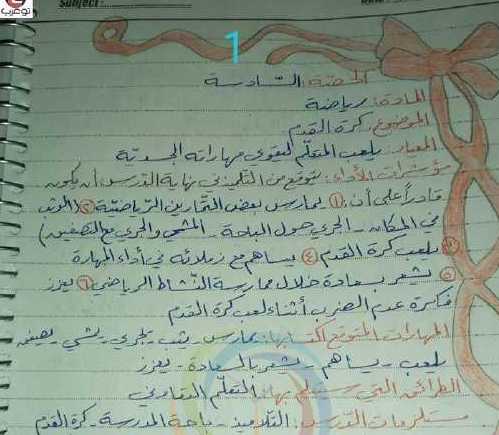 Subject:
توعرب
1
الحصة: السادسة
المادة: رياضة
الموضوع: كرة القدم
المعيار: يلعب المتعلّم لتقوى مهاراته الجسدية
مؤشرات الأداء: يتوقع من التلميذ في نهاية الدرس أن يكون
قادراً على أن: ① يمارس بعض التمارين الرياضية ② (الوثب
في المكان - الجري حول الباحة - المشي والجري مع التصفيق)
③ يلعب كرة القدم ④ يساهم مع زملائه في أداء المهارة
⑤ يشعر بسعادة خلال ممارسة النّشاط الرياضي ⑥ يعزز
فكرة عدم الضرب أثناء لعب كرة القدم
المهارات المتوقع اكتسابها: يمارس - يثب - يجري - يمشي - يصفق
يلعب - يساهم - يشعر بالسعادة - يعزز
الطرائق التي سنتعلم بها: التعلّم التعاوني
مستلزمات الدرس: التلاميذ - باحة المدرسة - كرة القدم